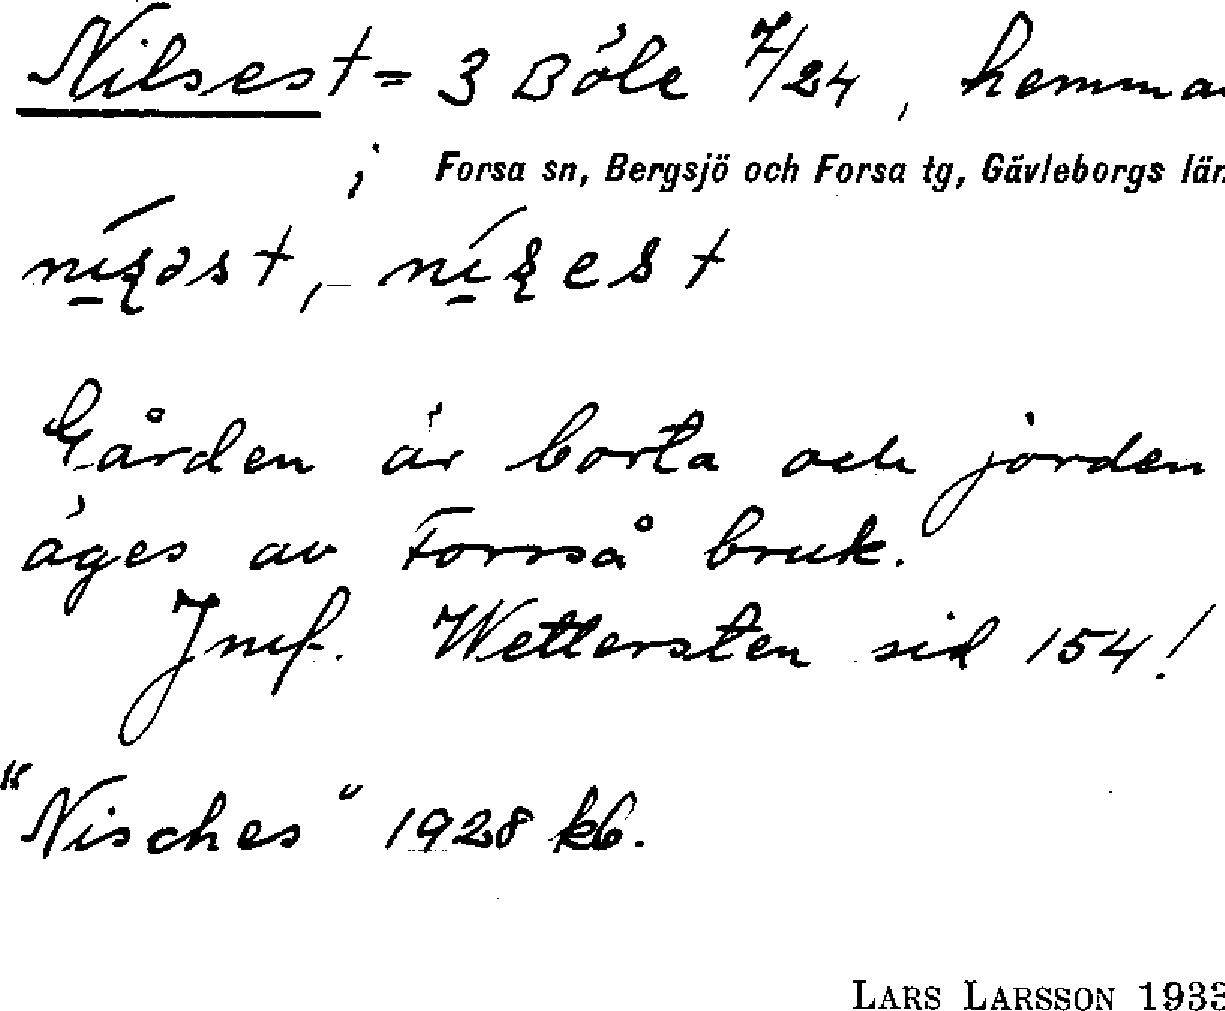 Nilsest = 3 Böle 7/24, hemma
; Forsa sn, Bergsjö och Forsa tg, Gävleborgs län
Gården är borta och jorden
äges av Forså bruk.
Jmf. Wettersten sid 154!
"Nisches" 1928 kb.
LARS LARSSON 1933